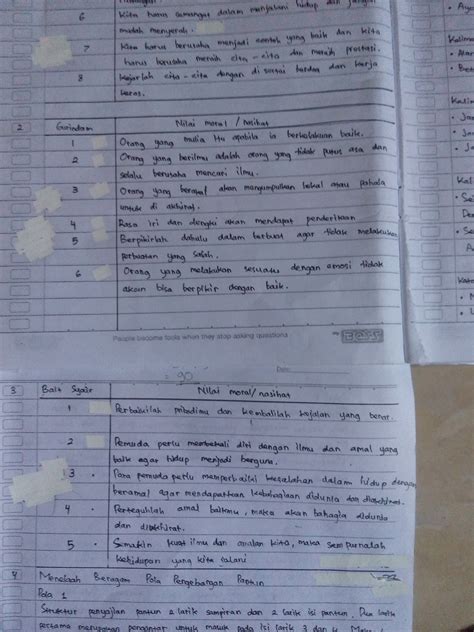 6 Kita harus semangat dalam menjalani hidup dan jangan
mudah menyerah.
7 Kita harus berusaha menjadi contoh yang baik dan kita
harus berusaha meraih cita-cita dan meraih prestasi.
8 Kejarlah cita-cita dengan di sertai berdoa dan kerja
keras.
2 Gurindam Nilai moral / nasihat
1 Orang yang mulia itu apabila ia berkelakuan baik.
2 Orang yang berilmu adalah orang yang tidak putus asa dan
selalu berusaha mencari ilmu.
3 Orang yang berakal akan mengumpulkan bekal atau pahala
untuk di akhirat.
4 Rasa iri dan dengki akan mendapat penderitaan
5 Berpikirlah dahulu dalam berbuat agar tidak melakukan
perbuatan yang salah.
6 Orang yang melakukan sesuatu dengan emosi tidak
akan bisa berpikir dengan baik.
People become tools when they stop asking questions
Date:
3 Bait Syair Nilai moral/ nasihat
1 Perbaikilah pribadimu dan kembalilah kejalan yang benar.
2 Pemuda perlu membekali diri dengan ilmu dan amal yang
baik agar hidup menjadi berguna.
3 Para pemuda perlu memperbaiki kesalahan dalam hidup dengan
beramal agar mendapatkan kebahagiaan didunia dan diakhirat.
4 Perteguhlah amal baikmu, maka akan bahagia didunia
dan diakhirat.
5 Semakin kuat ilmu dan amalan kita, maka sempurnalah
kehidupan yang kita jalani
4 Menelaah Beragam Pola Pengembangan Pantun
Pola 1
Struktur penyajian pantun 2 larik sampiran dan 2 larik isi pantun. Dua larik
pertama merupakan pengantar untuk masuk pada isi larik 3 dan 4.